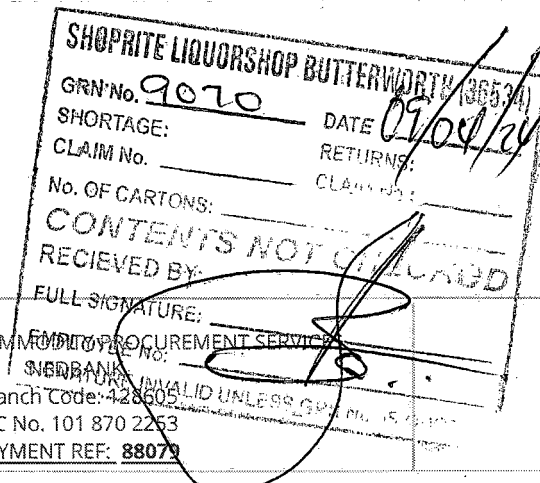 SHOPRITE LIQUORSHOP BUTTERWORTH (36534)
GRN No. 9070
DATE 09/04/24
SHORTAGE:
RETURNS:
CLAIM No.
No. OF CARTONS:
CONTENTS NOT CHECKED
RECIEVED BY:
FULL SIGNATURE:
EMPLOYEE No:
SIGNATURE INVALID UNLESS GRN No.
PROCUREMENT SERVICE
NEDBANK
anch Code: 128605
C No. 101 870 2253
YMENT REF: 88079